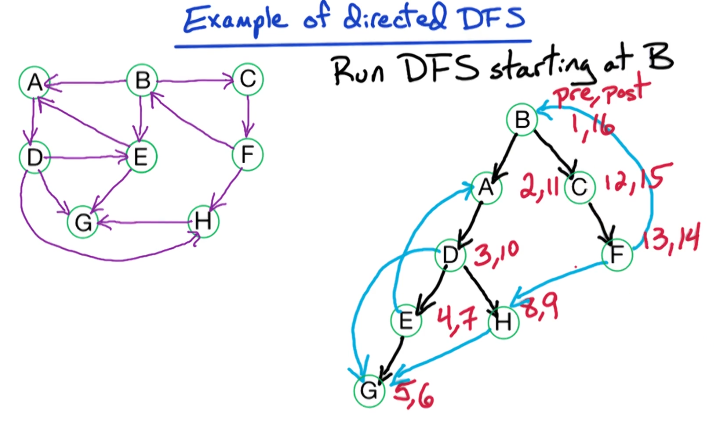 Example of directed DFS
Run DFS starting at B
A B C
D E F
G H
pre, post
B 1,16
A 2,11 C 12,15
D 3,10 F 13,14
E 4,7 H 8,9
G 5,6